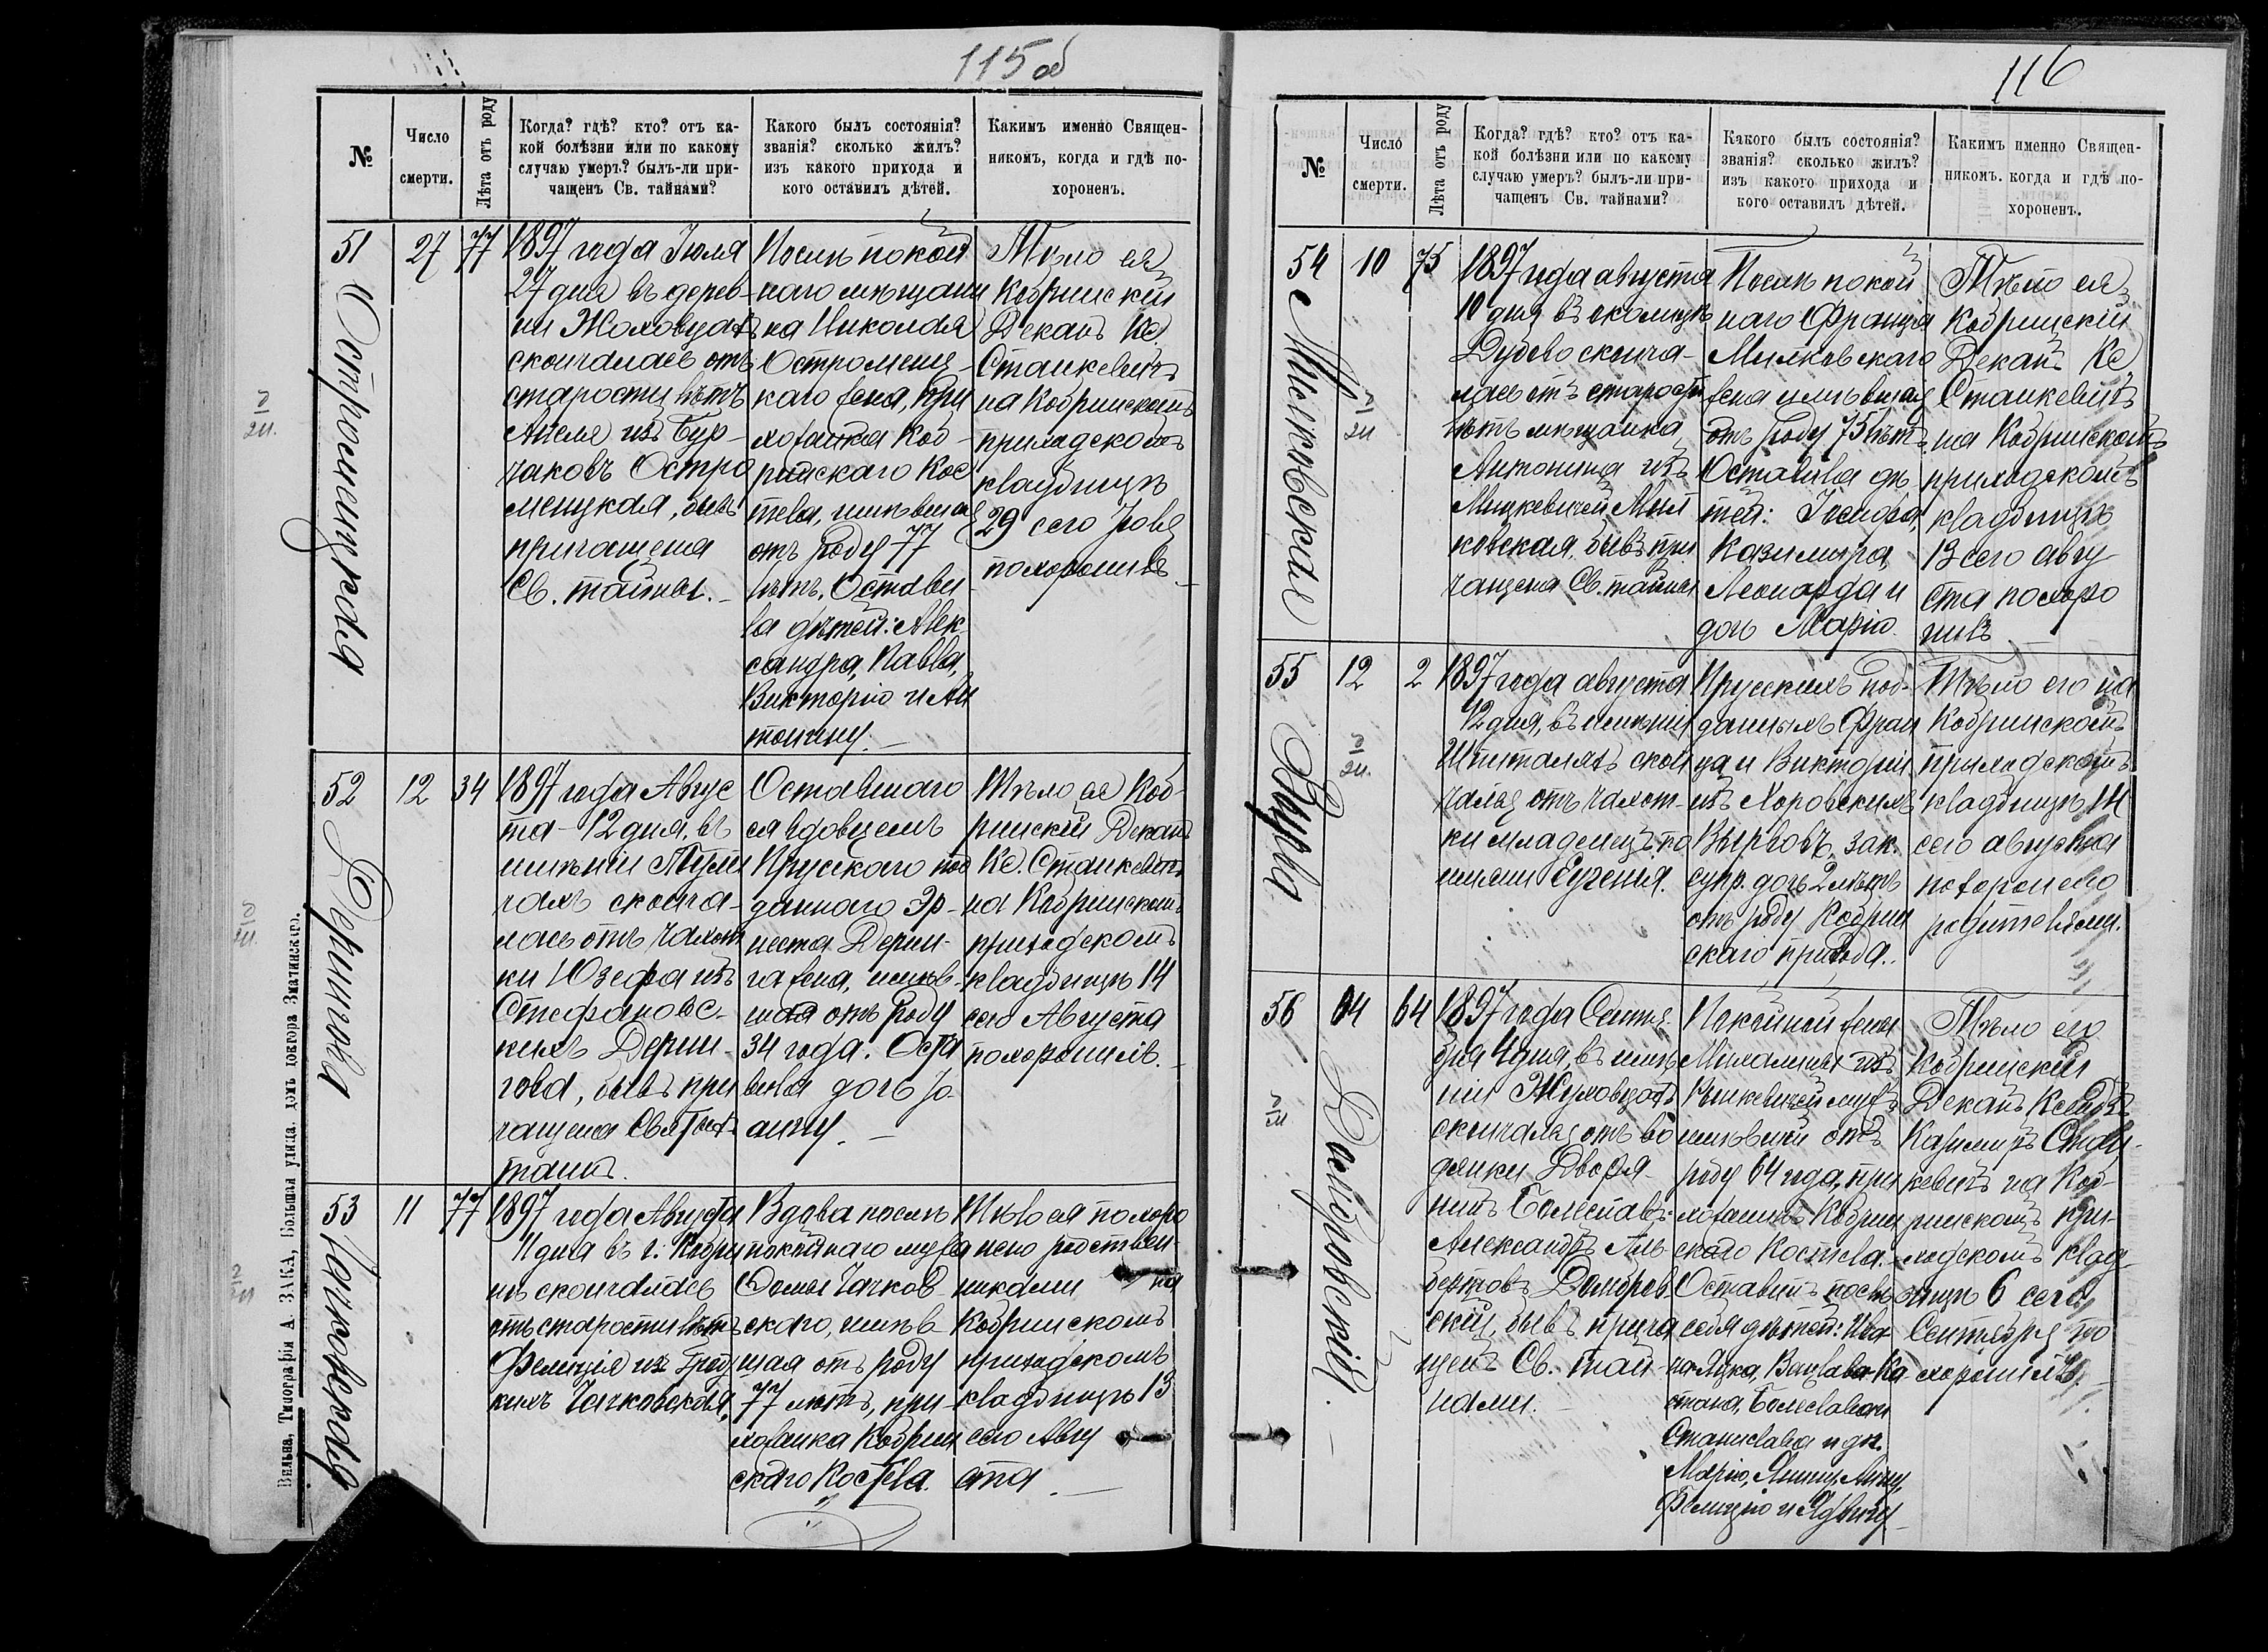 115 об
№
Число
смерти.
Лѣта отъ роду
Когда? гдѣ? кто? отъ ка-
кой болѣзни или по какому
случаю умеръ? былъ-ли при-
чащенъ Св. тайнами?
Какого былъ состоянія?
званія? сколько жилъ?
изъ какого прихода и
кого оставилъ дѣтей.
Какимъ именно Священ-
никомъ, когда и гдѣ по-
хороненъ.
51
Остромецкая
27
77
1897 года Іюля
27 дня въ дерев-
ни Жоловцахъ
скончалась отъ
старости лѣтъ
Анеля изъ Бур-
чаковъ Остро
мецкая, бывъ
причащена
Св. тайны.
Послѣ покой
наго мѣщани
на Николая
Остромец-
каго жена, при
хожанка Коб-
ринскаго Кос
тела, имѣвшая
отъ роду 77
лѣтъ. Остави
ла дѣтей: Алек
сандра, Павла,
Викторію и Ан
тонину.
Тѣло ея
Кобринскій
Деканъ Кс.
Станкевичъ
на Кобринскомъ
приходскомъ
кладбищѣ
29 сего Іюля
похоронилъ
52
Деринова
12
34
1897 года Авгус
та 12 дня, въ
имѣніи
скONча-
лась отъ чахот
ки Юзефа изъ
Стефановс-
кихъ Дерин-
гова, бывъ при
чащена Святыхъ
таинъ.
Оставшаго
ся вдовцемъ
Прусского под
даннаго Эр-
неста Дерин-
га жена, имѣв-
шая отъ роду
34 года. Оста
вила дочь Jо
анну.
Тѣло ея Коб-
ринскій Деканъ
Кс. Станкевичъ
на Кобринскомъ
приходскомъ
кладбищѣ 14
сего Августа
похоронилъ.
53
Чачковская
11
77
1897 года Августа
11 дня въ г. Кобри
нѣ скончалась
отъ старости лѣтъ
Фелиція изъ
кихъ Чачковская,
Вдова послѣ
покойнаго мужа
Чачков
скаго, имѣв
шая отъ роду
77 лѣтъ, при-
хожанка Кобрин
скаго Костела.
Тѣло ея похоро
нено родствен-
никами на
Кобринскомъ
приходскомъ
кладбищѣ 13
сего Авгу
ста
Вильна, Типографія А. ЗАКА, Большая улица, домъ доктора Змачинскаго.
116
№
Число
смерти.
Лѣта отъ роду
Когда? гдѣ? кто? отъ ка-
кой болѣзни или по какому
случаю умеръ? былъ-ли при-
чащенъ Св. тайнами?
Какого былъ состоянія?
званія? сколько жилъ?
изъ какого прихода и
кого оставилъ дѣтей.
Какимъ именно Священ-
никомъ. когда и гдѣ по-
хороненъ.
54
Милковская
10
75
1897 года августа
10 дня въ околицѣ
Дубово сконча-
лась отъ старости
лѣтъ мѣщанка
Антонина изъ
Мицкевичей Мил
ковская. бывъ при
чащена Св. тайны
Послѣ покой
наго Франца
Милковскаго
жена имѣвшая
отъ роду 75 лѣтъ.
Оставила дѣ
тей: Іосифа,
Казимира,
Леонарда и
дочь Марію.
Тѣло ея
Кобринскій
Деканъ Кс.
Станкевичъ
на Кобринскомъ
приходскомъ
кладбищѣ
13 сего авгу
ста похоро
нилъ
55
12
2
1897 года августа
12 дня, въ имѣніи
Шпиталяхъ скон
чалась отъ чахот-
ки младенецъ по
имени Евгенія.
Прусскихъ под-
данныхъ Фран
ца и Викторіи
изъ Хоровскихъ
зак.
супр. дочь 2 лѣтъ
отъ роду Кобрин
скаго прихода.
Тѣло его на
Кобринскомъ
приходскомъ
кладбищѣ 14
сего августа
похоронено
родителями.
56
Домбровскій
04
64
1897 года Сентя-
бря 4 дня, въ имѣ
ніи Жуховцахъ
скончался отъ во
дянки Дворя-
нинъ Болеславъ-
Александръ Аль
бертовъ Домбров
скій, бывъ прича
щенъ Св. тай-
нами.
Покойной жены
Михалины изъ
мужъ
имѣвшій отъ
роду 64 года, при
хожанинъ Кобрин
скаго Костела.
Оставилъ послѣ
себя дѣтей:
Вацлава Ка
Болеслава и
Станислава и доч.
Марію, Янину, Анну,
Фелицію и Ядвигу
Тѣло его
Кобринскій
Деканъ Ксендзъ
Казимиръ Стан-
кевичъ на Коб-
ринскомъ при-
ходскомъ клад-
бищѣ 6 сего
Сентября по
хоронилъ.